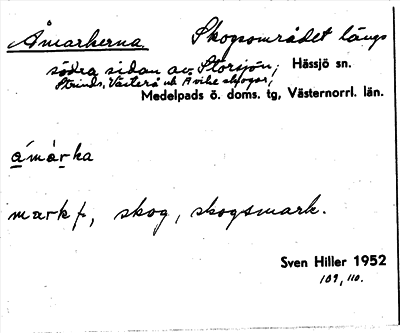 Åmarkerna Skogsområdet längs
södra sidan av Storsjön; Hässjö sn.
Strinds, Västerå och Åvike skogar,
Medelpads ö. doms. tg, Västernorrl. län.
mark f, skog, skogsmark.
Sven Hiller 1952
109, 110.